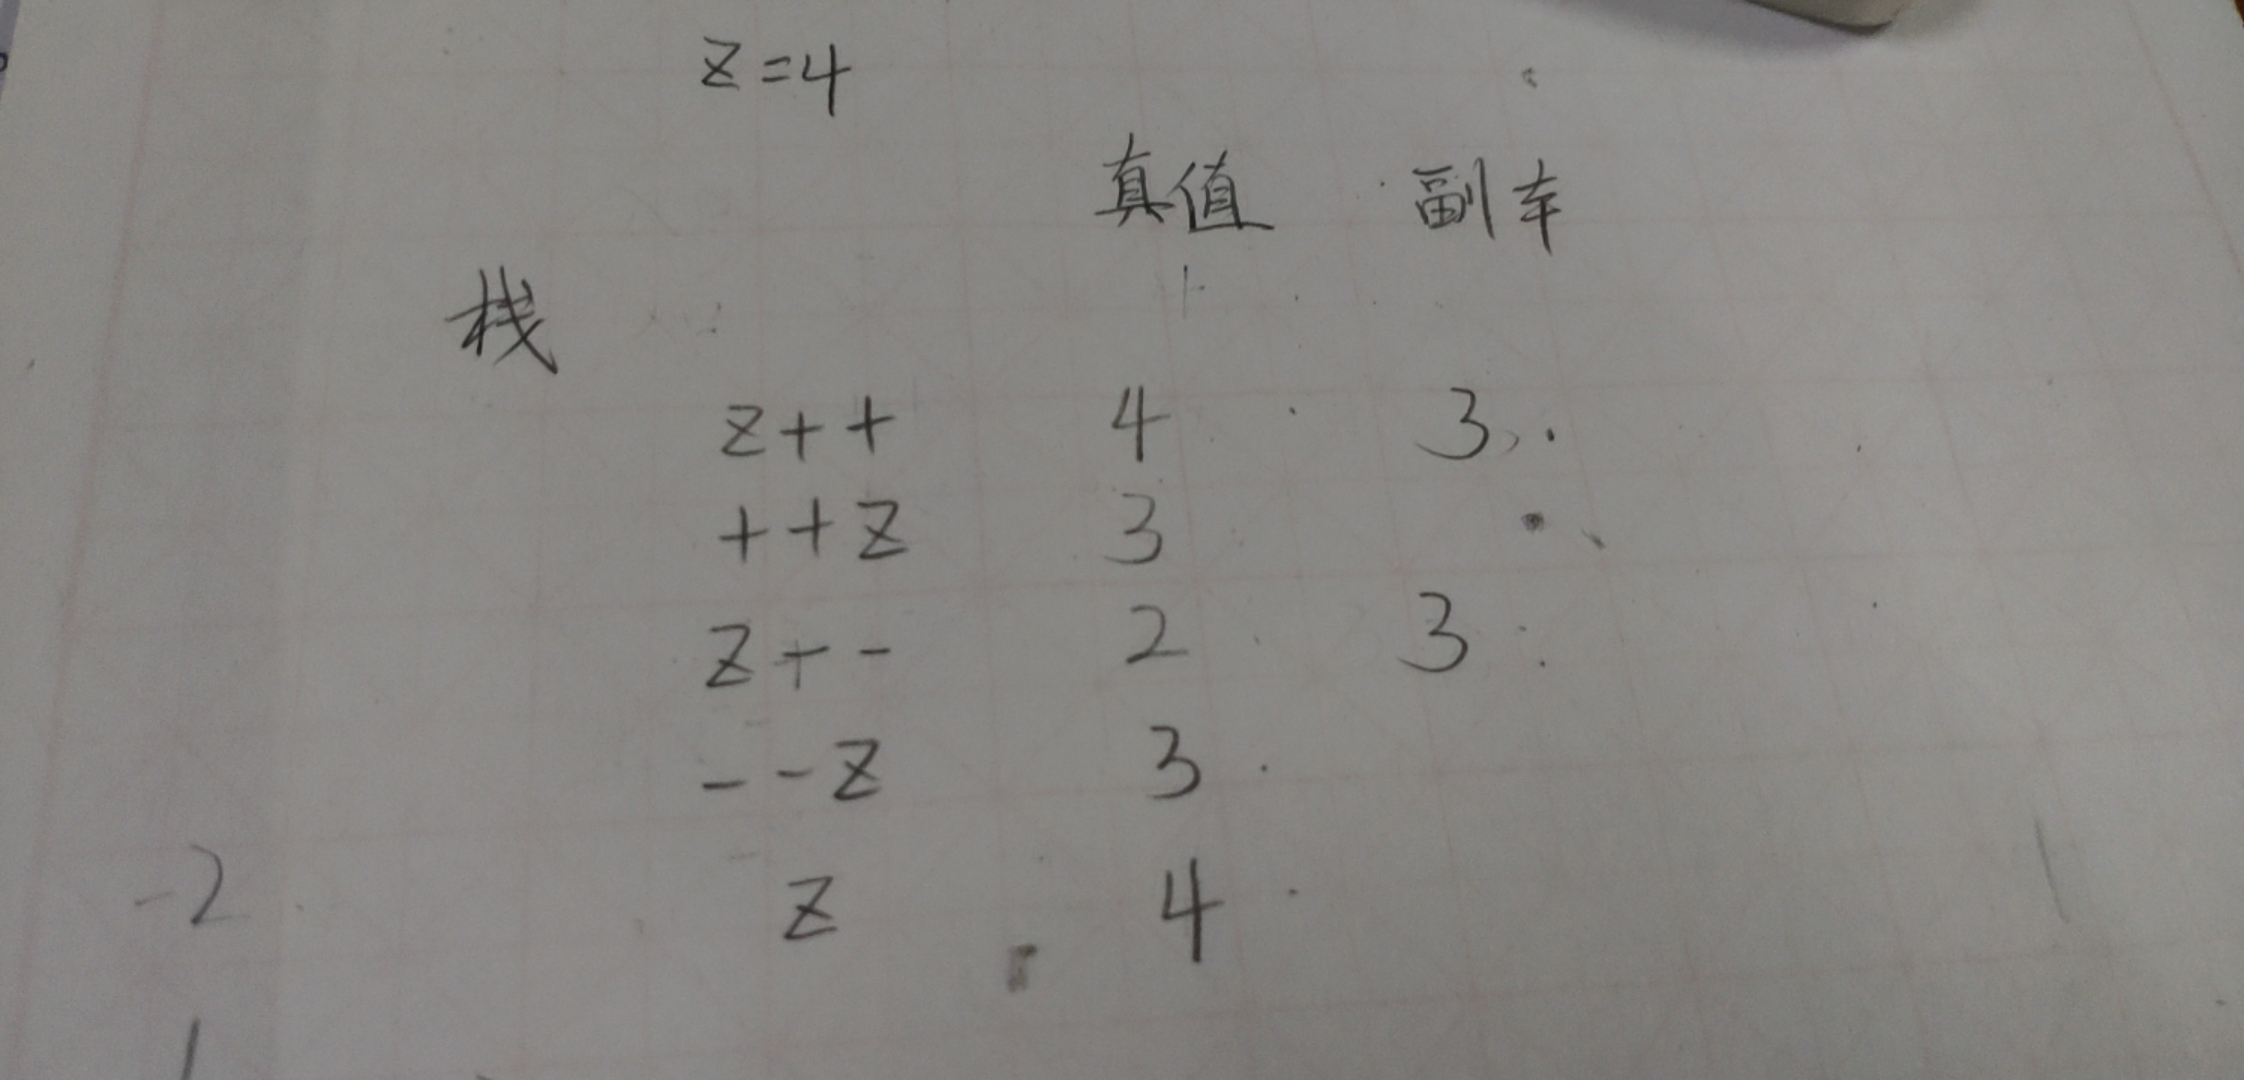 z=4
真值 副车
栈
z++ 4 3
++z 3
z+- 2 3
--z 3
-2 z 4